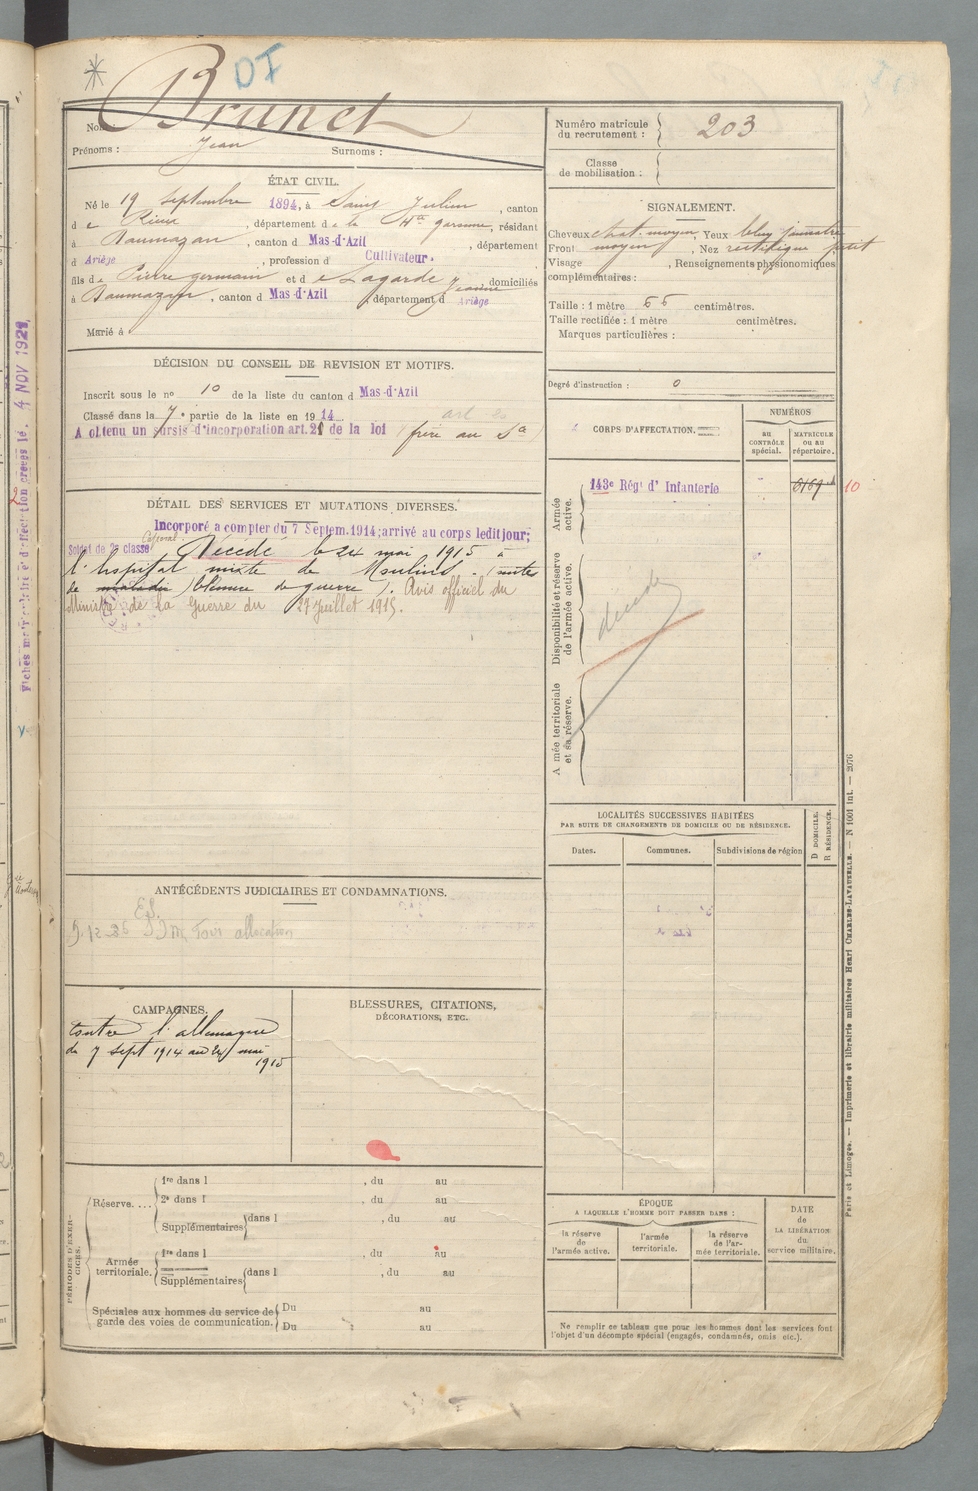 DI
Brunet
Nom :
Prénoms : Jean Surnoms :
Numéro matricule du recrutement : 203
Classe de mobilisation :
ÉTAT CIVIL.
Né le 19 septembre 1894, à Saint Julien, canton
de Rieux, département de la Hte garonne, résidant
à Daumazan, canton d Mas-d'Azil, département
d Ariège, profession d Cultivateur
fils de Pierre germain et de Lagarde Jeanne domiciliés
à Daumazan, canton d Mas-d'Azil, département d Ariège
Marié à
SIGNALEMENT.
Cheveux chat. moyen, Yeux bleu jaunatre
Front moyen, Nez rectiligne petit
Visage , Renseignements physionomiques
complémentaires :
Taille : 1 mètre 66 centimètres.
Taille rectifiée : 1 mètre centimètres.
Marques particulières :
Degré d'instruction : 0
DÉCISION DU CONSEIL DE REVISION ET MOTIFS.
Inscrit sous le no 10 de la liste du canton d Mas-d'Azil
Classé dans la 7e partie de la liste en 1914. art 20
A obtenu un sursis d'incorporation art. 21 de la loi frère au Sce
CORPS D'AFFECTATION.
NUMÉROS
AU CONTRÔLE spécial.
MATRICULE OU AU répertoire.
Armée active.
143e Régt d' Infanterie
6169
10
Disponibilité et réserve de l'armée active.
décédé
Armée territoriale et sa réserve.
DÉTAIL DES SERVICES ET MUTATIONS DIVERSES.
Incorporé a compter du 7 Septem. 1914; arrivé au corps leditjour;
Soldat de 2e classe Caporal Décédé le 24 mai 1915 à
l'hopital mixte de Moulins (suites
de maladie) (blessure de guerre). Avis officiel du
Ministre de la Guerre du 27 Juillet 1915.
Fiches matriculaire d'affection créées le 4 NOV 1921
LOCALITÉS SUCCESSIVES HABITÉES
PAR SUITE DE CHANGEMENTS DE DOMICILE OU DE RÉSIDENCE.
Dates. Communes. Subdivisions de région
D DOMICILE.
R RÉSIDENCE.
ANTÉCÉDENTS JUDICIAIRES ET CONDAMNATIONS.
allocation
CAMPAGNES.
Contre l'allemagne
du 7 sept 1914 au 24 mai
1915
BLESSURES, CITATIONS,
DÉCORATIONS, ETC.
PÉRIODES D'EXERCICES.
Réserve....
1re dans l , du au
2e dans l , du au
Supplémentaires dans l , du au
Armée territoriale.
1re dans l , du au
Supplémentaires dans l , du au
Spéciales aux hommes du service de
garde des voies de communication.
Du au
Du au
ÉPOQUE
A LAQUELLE L'HOMME DOIT PASSER DANS :
la réserve de l'armée active.
l'armée territoriale.
la réserve de l'armée territoriale.
DATE de LA LIBÉRATION du service militaire.
Ne remplir ce tableau que pour les hommes dont les services font
l'objet d'un décompte spécial (engagés, condamnés, omis etc.).
Paris et Limoges. — Imprimerie et librairie militaires Henri CHARLES-LAVAUZELLE. — N 1001 int. — 2076